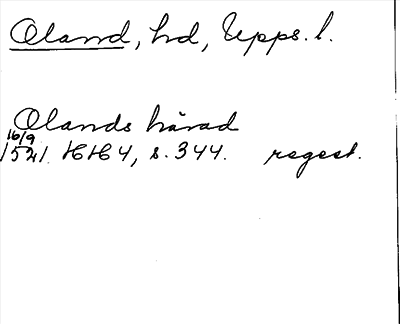 Oland, hd, Upps. l.
Olands härad
16/9
1521. HH 4, s. 344. regest.